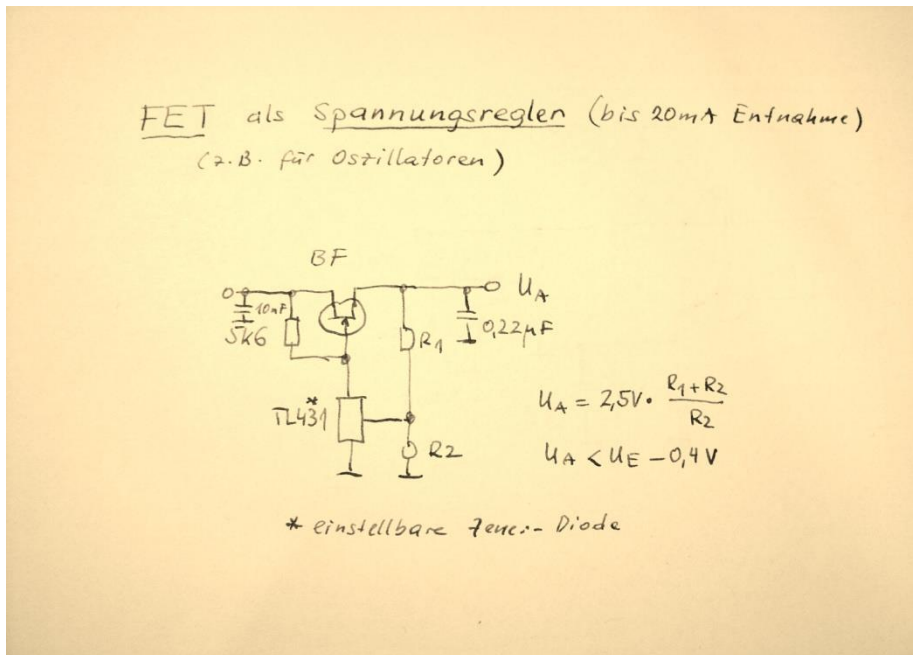 FET als Spannungsregler (bis 20mA Entnahme)
(z.B. für Oszillatoren)
BF
U_A
10nF
5k6
R1
0,22µF
TL431*
R2
U_A = 2,5V · (R1+R2)/R2
U_A < U_E - 0,4V
* einstellbare Zener-Diode